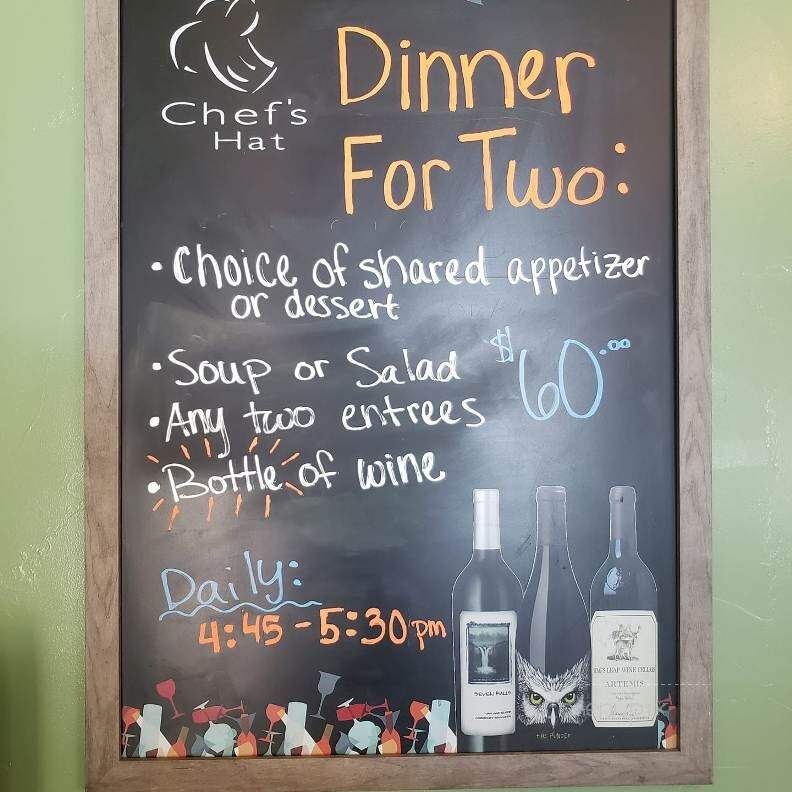 Chef's
Hat
Dinner
For Two:
• Choice of shared appetizer
or dessert
• Soup or Salad
$60.00
• Any two entrees
• Bottle of wine
Daily:
4:45 - 5:30 pm
SEVEN FALLS
STAG'S LEAP WINE CELLARS
ARTEMIS